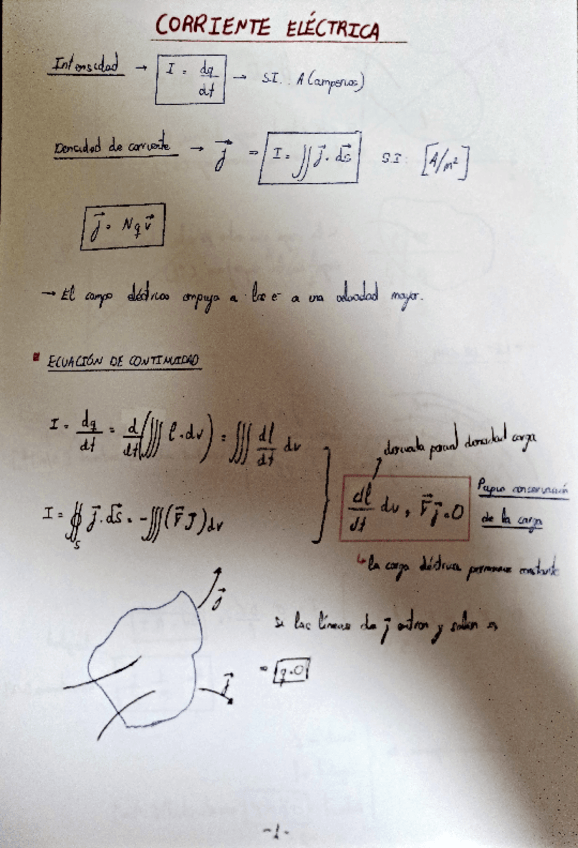 CORRIENTE ELÉCTRICA
Intensidad → I = dq/dt → S.I. A (amperios)
Densidad de corriente → j⃗ = I = ∬ j⃗ · ds⃗ S.I. [A/m²]
j⃗ = Nq v⃗
→ El campo eléctrico empuja a los e⁻ a una velocidad mayor.
ECUACIÓN DE CONTINUIDAD
I = dq/dt = d/dt (∭ ρ · dv) = ∭ dρ/dt dv
derivada parcial densidad carga
I = ∯s j⃗ · ds⃗ = -∭ (∇⃗ J) dv
dρ/dt dv + ∇⃗ j⃗ = 0
conservación
de la carga
↳ la carga eléctrica permanece constante
j⃗
si las líneas de j⃗ entran y salen
= q=0
j⃗
-1-